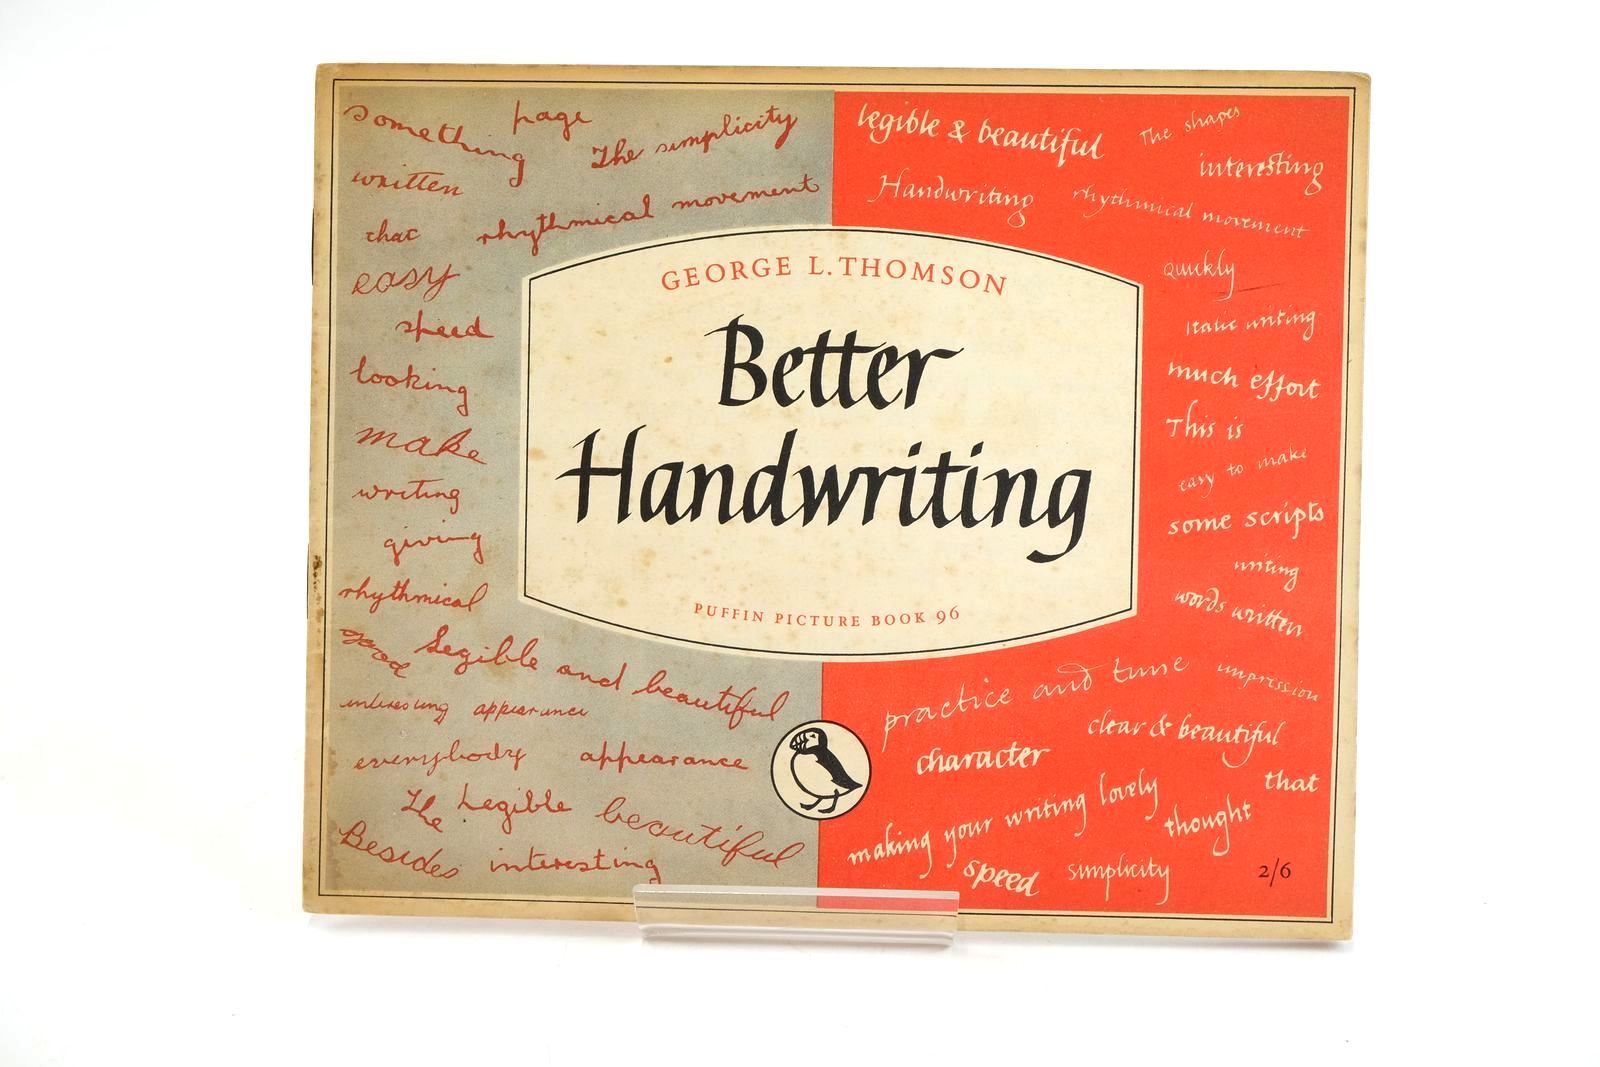 something
page
The simplicity
written
that
rhythmical movement
easy
speed
looking
make
writing
giving
rhythmical
good
Legible and beautiful
interesting appearance
everybody appearance
The Legible beautiful
Besides interesting
legible & beautiful
The shapes
interesting
Handwriting
rhythmical movement
quickly
Italic writing
much effort
This is
easy to make
some scripts
writing
words written
GEORGE L. THOMSON
Better
Handwriting
PUFFIN PICTURE BOOK 96
practice and time
impression
clear & beautiful
character
that
making your writing lovely
thought
speed
simplicity
2/6